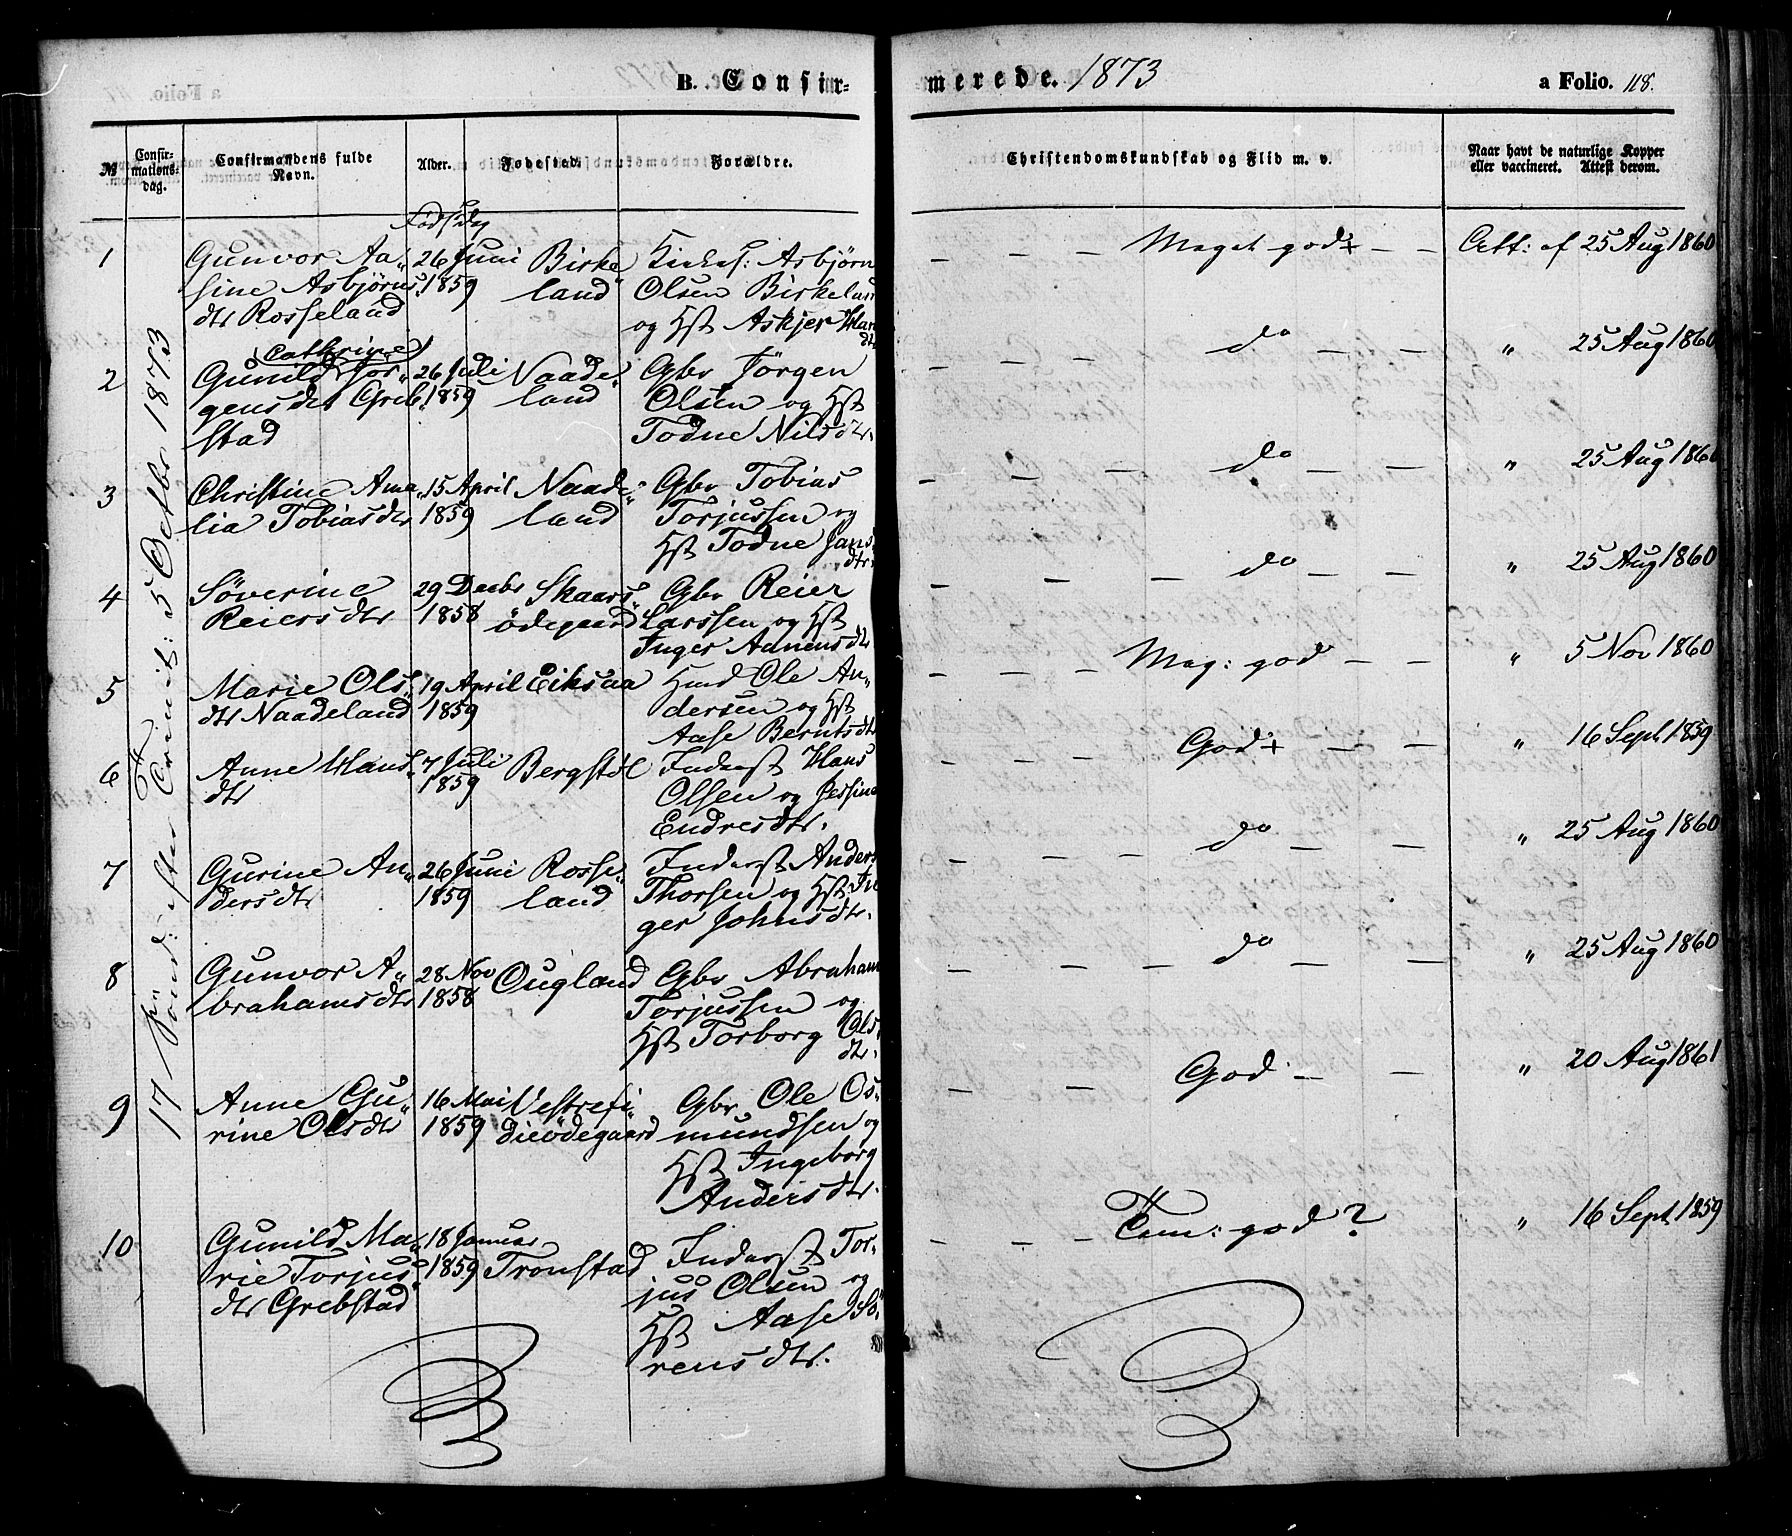 B. Confir-
merede. 1873
a Folio. 118.
No
Confir-
mations-
dag.
Confirmandens fulde
Navn.
Alder.
Fødested.
Forældre.
Christendomskundskab og Flid m. v.
Naar havt de naturlige Kopper
eller vaccineret. Attest derom.
Føds: dag
17 Sønd: efter Trinit: 5 Octbr 1873
1
Gunvor Aa„
sine Asbjørns
dtr Rosseland
26 Juni
1859
Birke
land
Kirkes: Asbjørn
Olsen Birkeland
og Hst Askjer Han
dtr
— — Maget god+ — —
Att: af 25 Aug 1860
2
(Cathrine)
Gunild Jør„
gensdtr Greb„
stad
26 Juli
1859
Naade„
land
Gbr Jörgen
Olsen og Hst
Todne Nilsdtr.
— — — do — —
„ 25 Aug 1860
3
Christine Ama„
lia Tobiasdtr
15 April
1859
Naade„
land
Gbr Tobias
Torjussen og
Hst Todne Jans
dtr.
— — — do — —
„ 25 Aug 1860
4
Søverine
Reiersdtr
29 Decbr
1858
Skaars„
ödegaard
Gbr Reier
Larssen og Hst
Inger Adnensdtr
— — — do — —
„ 25 Aug 1860
5
Marie Ols„
dtr Naadeland
19 April
1859
Eiksaa
Hmd Ole An„
dersen og Hst
Aase Berntsdtr
— — — Mag: god — —
„ 5 Nov 1860
6
Anne Hans„
dtr
7 Juli
1859
Bergstöl
Inderst Hans
Olsen og Jessine
Endresdtr.
— — — God+ — —
„ 16 Sept 1859
7
Gurine An„
dersdtr
26 Juni
1859
Rosse„
land
Inderst Anders
Thorsen og Hst In
ger Johnsdtr.
— — — do — —
„ 25 Aug 1860
8
Gunvor A„
brahamsdtr
28 Nov
1858
Ougland
Gbr Abraham
Torjussen og
Hst Torborg Ols
dtr.
— — — do — —
„ 25 Aug 1860
9
Anne Gu„
rine Olsdtr
16 Mai
1859
Vestrefi„
dieödegaard
Gbr Ole Os„
mundsen og
Hst Ingeborg
Andersdtr.
— — God — —
„ 20 Aug 1861
10
Gunild Ma„
rie Torjus„
dtr Grebstad
18 Januar
1859
Tronstad
Inderst Tor„
jus Olsen og
Hst Aase Sö„
rensdtr.
— — — Tem: god?
„ 16 Sept 1859